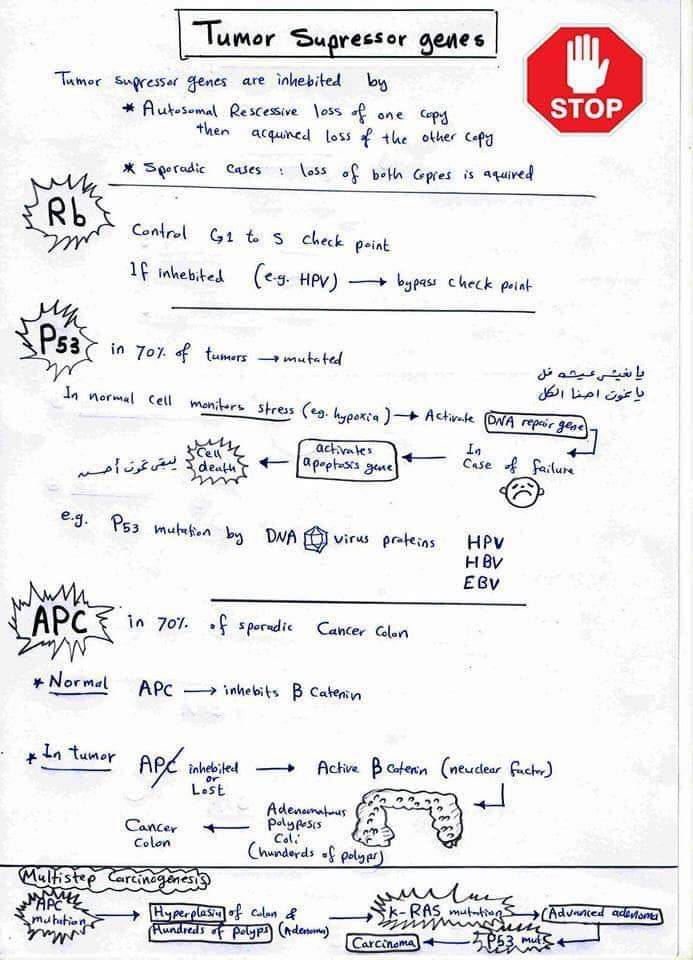 Tumor Supressor genes
STOP
Tumor supressor genes are inhebited by
* Autosomal Rescessive loss of one copy
then acquired loss of the other copy
* Sporadic cases : loss of both Copies is aquired
Rb
Control G1 to S check point
If inhebited (e.g. HPV) → bypass check point
P53
in 70% of tumors → mutated
يا نعيش عيشه فل
يا نموت احنا الكل
In normal cell monitors stress (eg. hypoxia) → Activate DNA repair gene
In
Case of failure
activates
apoptosis gene
Cell
death
يبقى نموت أحسن
e.g. P53 mutation by DNA virus proteins HPV
HBV
EBV
APC
in 70% of sporadic Cancer Colon
* Normal APC → inhebits β Catenin
* In tumor APC inhebited
or
Lost
→ Active β Catenin (neuclear factor)
Adenomatous
polyposis
Coli
(hunderds of polyps)
Cancer
Colon
Multistep Carcinogenesis
APC
mutation
→ Hyperplasia of colon &
Hundreds of polyps (Adenoma)
→ K-RAS mutation → Advanced adenoma
P53 mut.
Carcinoma